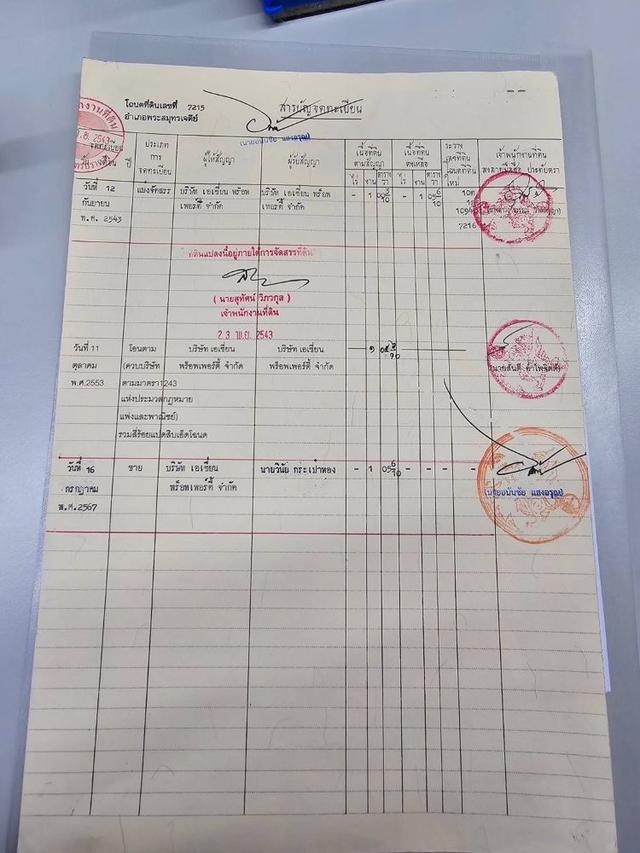 โฉนดที่ดินเลขที่ 7215
อำเภอพระสมุทรเจดีย์
สารบัญจดทะเบียน
(นายอนันชัย แสงอรุณ)
จดทะเบียน วัน เดือน ปี
ประเภทการจดทะเบียน
ผู้ให้สัญญา
ผู้รับสัญญา
เนื้อที่ดินตามสัญญา
ไร่ งาน ตารางวา
เนื้อที่ดินคงเหลือ
ไร่ งาน ตารางวา
เจ้าพนักงานที่ดิน
ลงลายมือชื่อ ประทับตรา
วันที่ 12 แบ่งจัดสรร บริษัท เอเชี่ยน พร็อพ บริษัท เอเชี่ยน พร็อพ - 1
กันยายน เพอร์ตี้ จำกัด เพอร์ตี้ จำกัด
พ.ศ. 2543 7216
ที่ดินแปลงนี้อยู่ภายใต้การจัดสรรที่ดิน
( นายสุทัศน์ วิภวกุล )
เจ้าพนักงานที่ดิน
23 พ.ย. 2543
วันที่ 11 โอนตาม บริษัท เอเชี่ยน บริษัท เอเชี่ยน
ตุลาคม (ควบบริษัท พร้อพเพอร์ตี้ จำกัด พร้อพเพอร์ตี้ จำกัด
พ.ศ.2553 ตามมาตรา1243
แห่งประมวลกฎหมาย
แพ่งและพาณิชย์)
รวมสี่ร้อยแปดสิบเอ็ดโฉนด
วันที่ 16 ขาย บริษัท เอเชี่ยน นายวินัย กระเป๋าทอง - 1 05 6/10 - - - -
กรกฎาคม พร็อพเพอร์ตี้ จำกัด (นายอนันชัย แสงอรุณ)
พ.ศ.2567